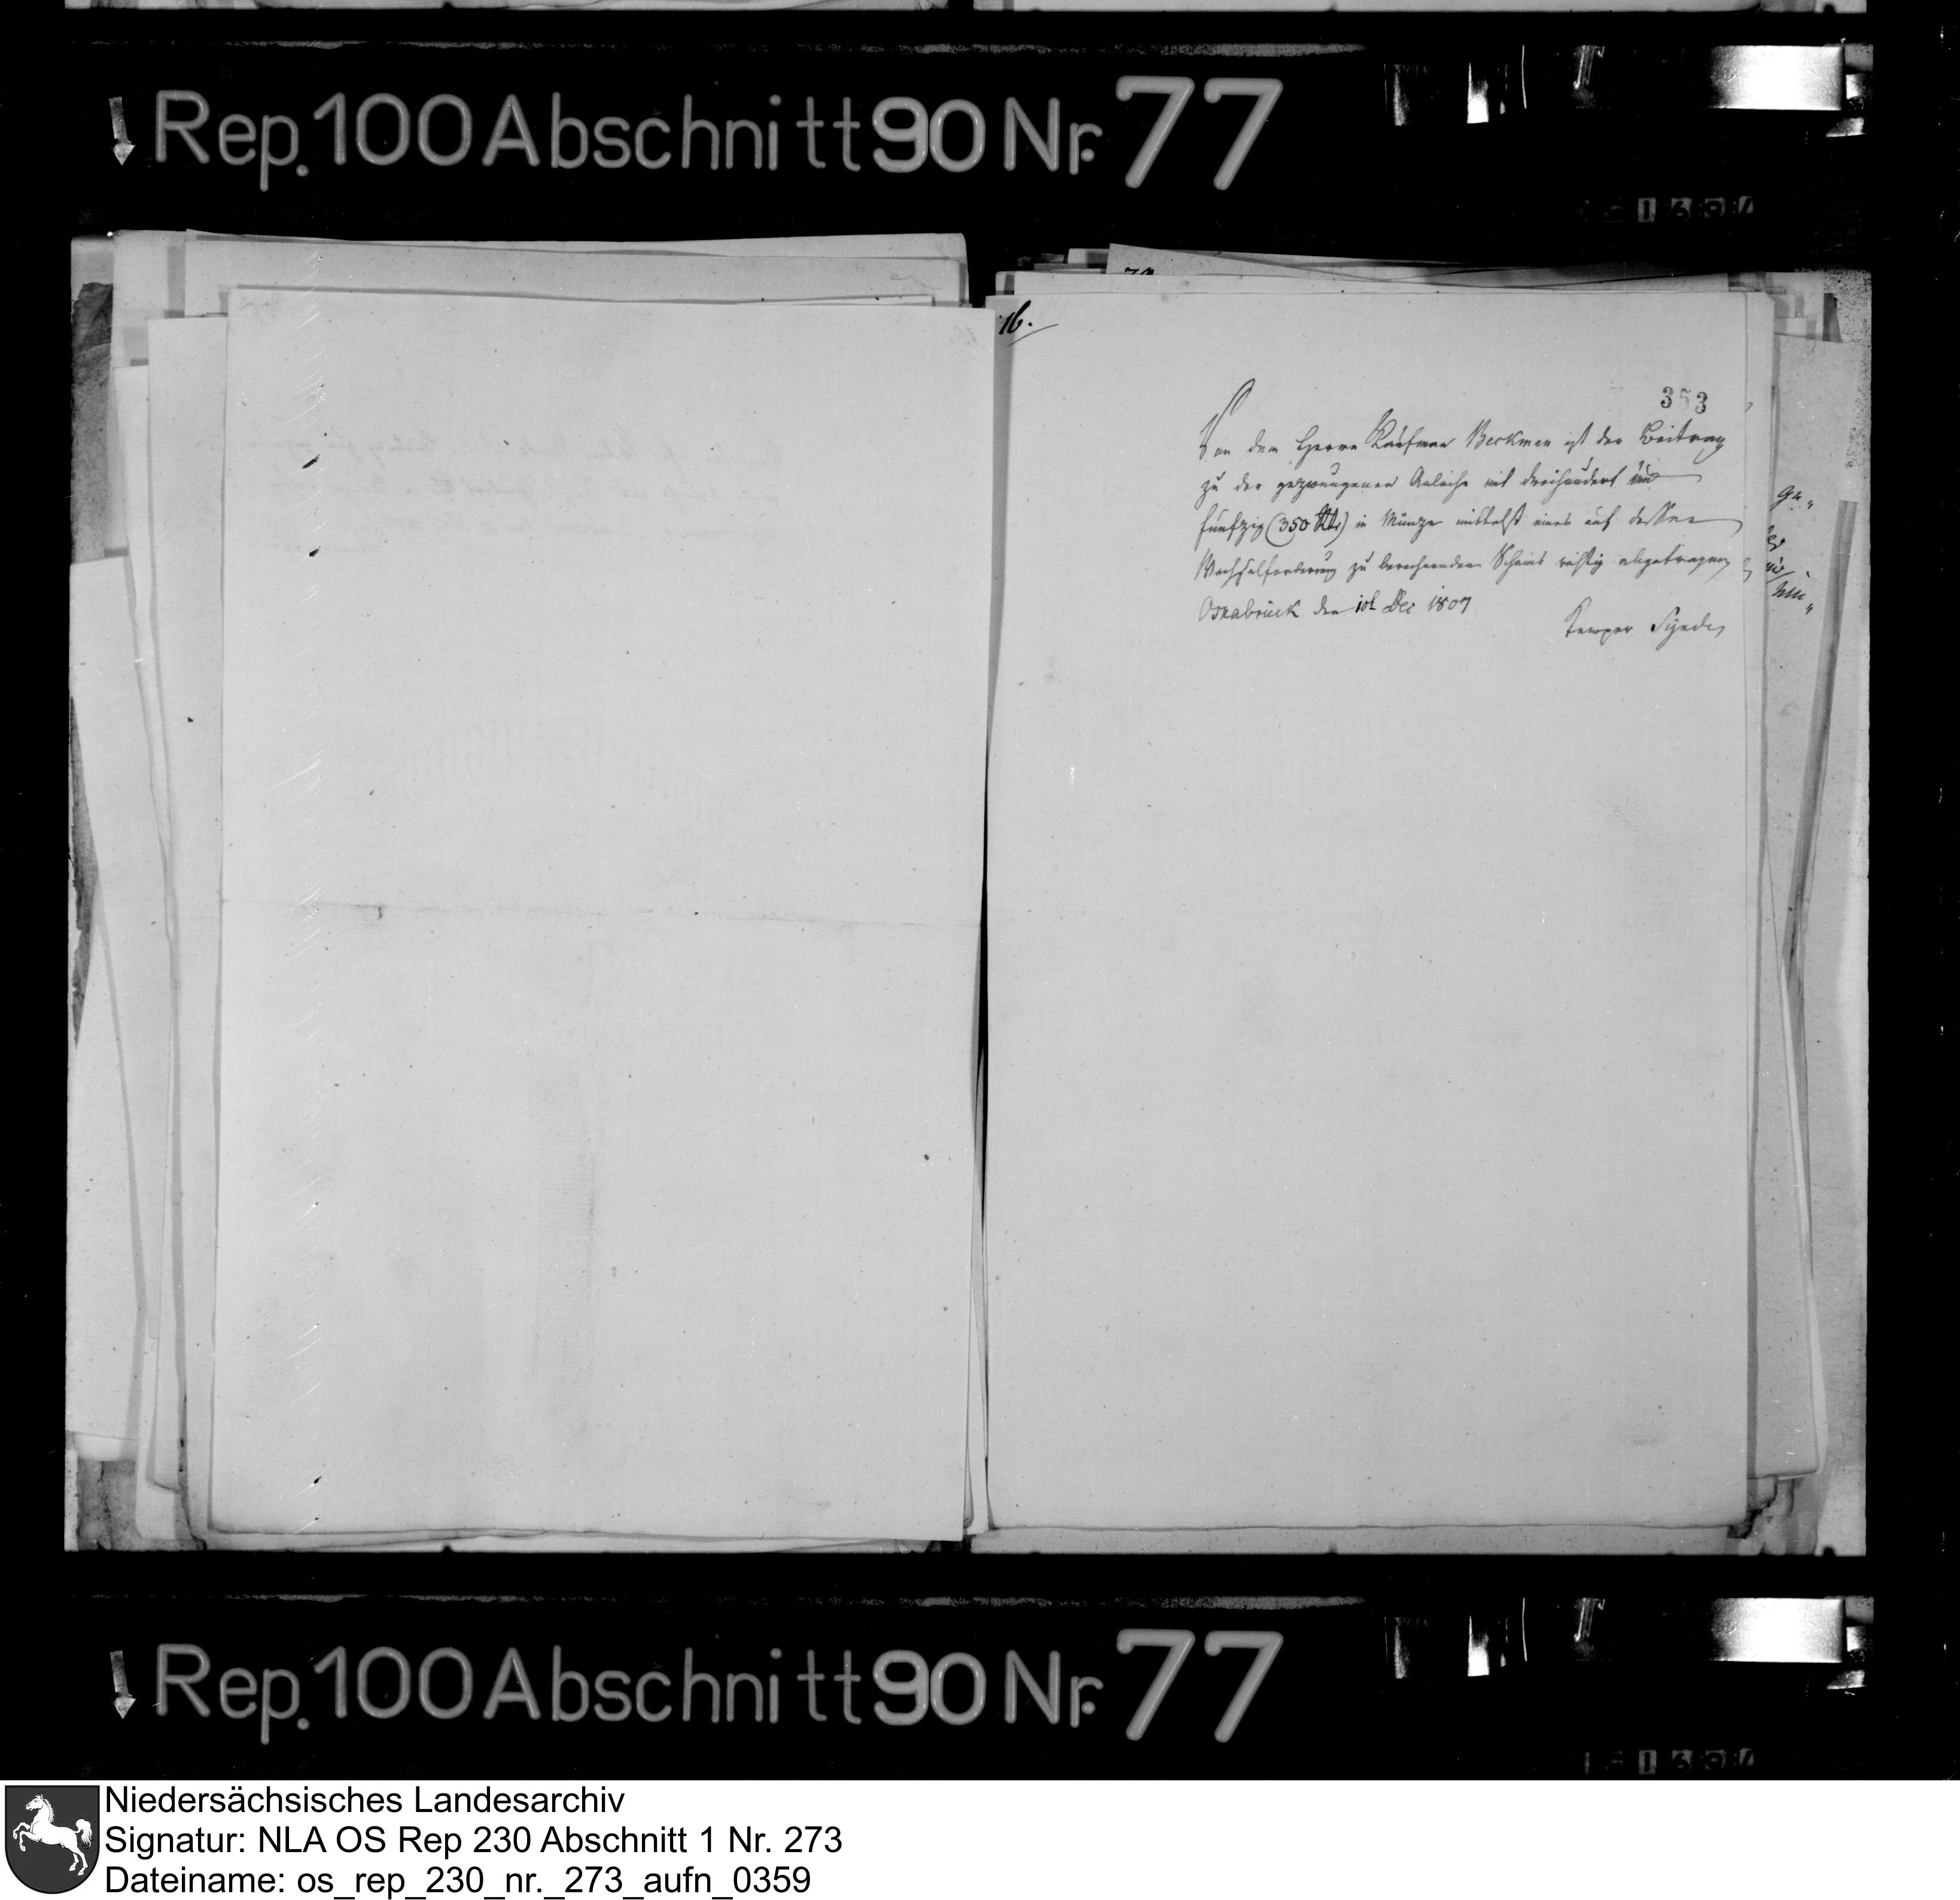 Rep. 100 Abschnitt 90 Nr. 77
16.
353
Von dem Herrn Kaufman Berkman ist der Beitrag
zu der gezwungenen Anleihe mit dreihundert und
funfzig (350 Rtl) in Münze mittelst eines auf dessen
Wechselforderung zu berechnenden Scheins richtig abgetragen
Osnabrück den 10t Dec 1807
Temper Syndic
Rep. 100 Abschnitt 90 Nr. 77
Niedersächsisches Landesarchiv
Signatur: NLA OS Rep 230 Abschnitt 1 Nr. 273
Dateiname: os_rep_230_nr._273_aufn_0359